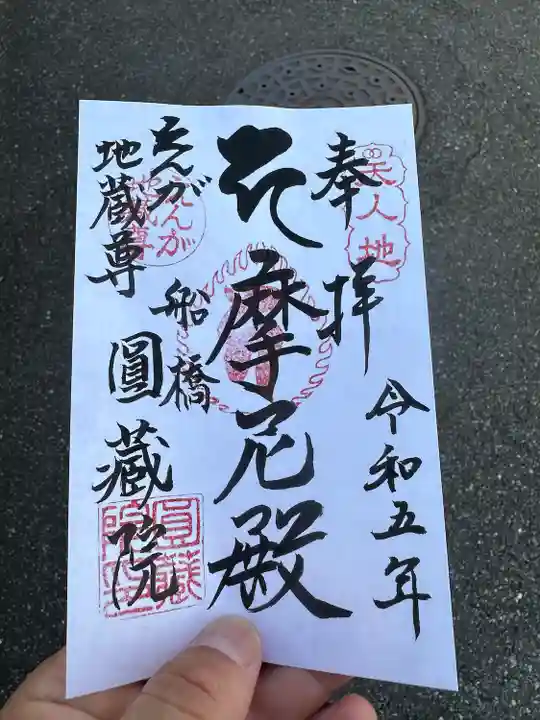 奉拝
令和五年
摩尼殿
船橋
圓蔵院
えんが
地蔵尊
天人地
えんが
地蔵尊